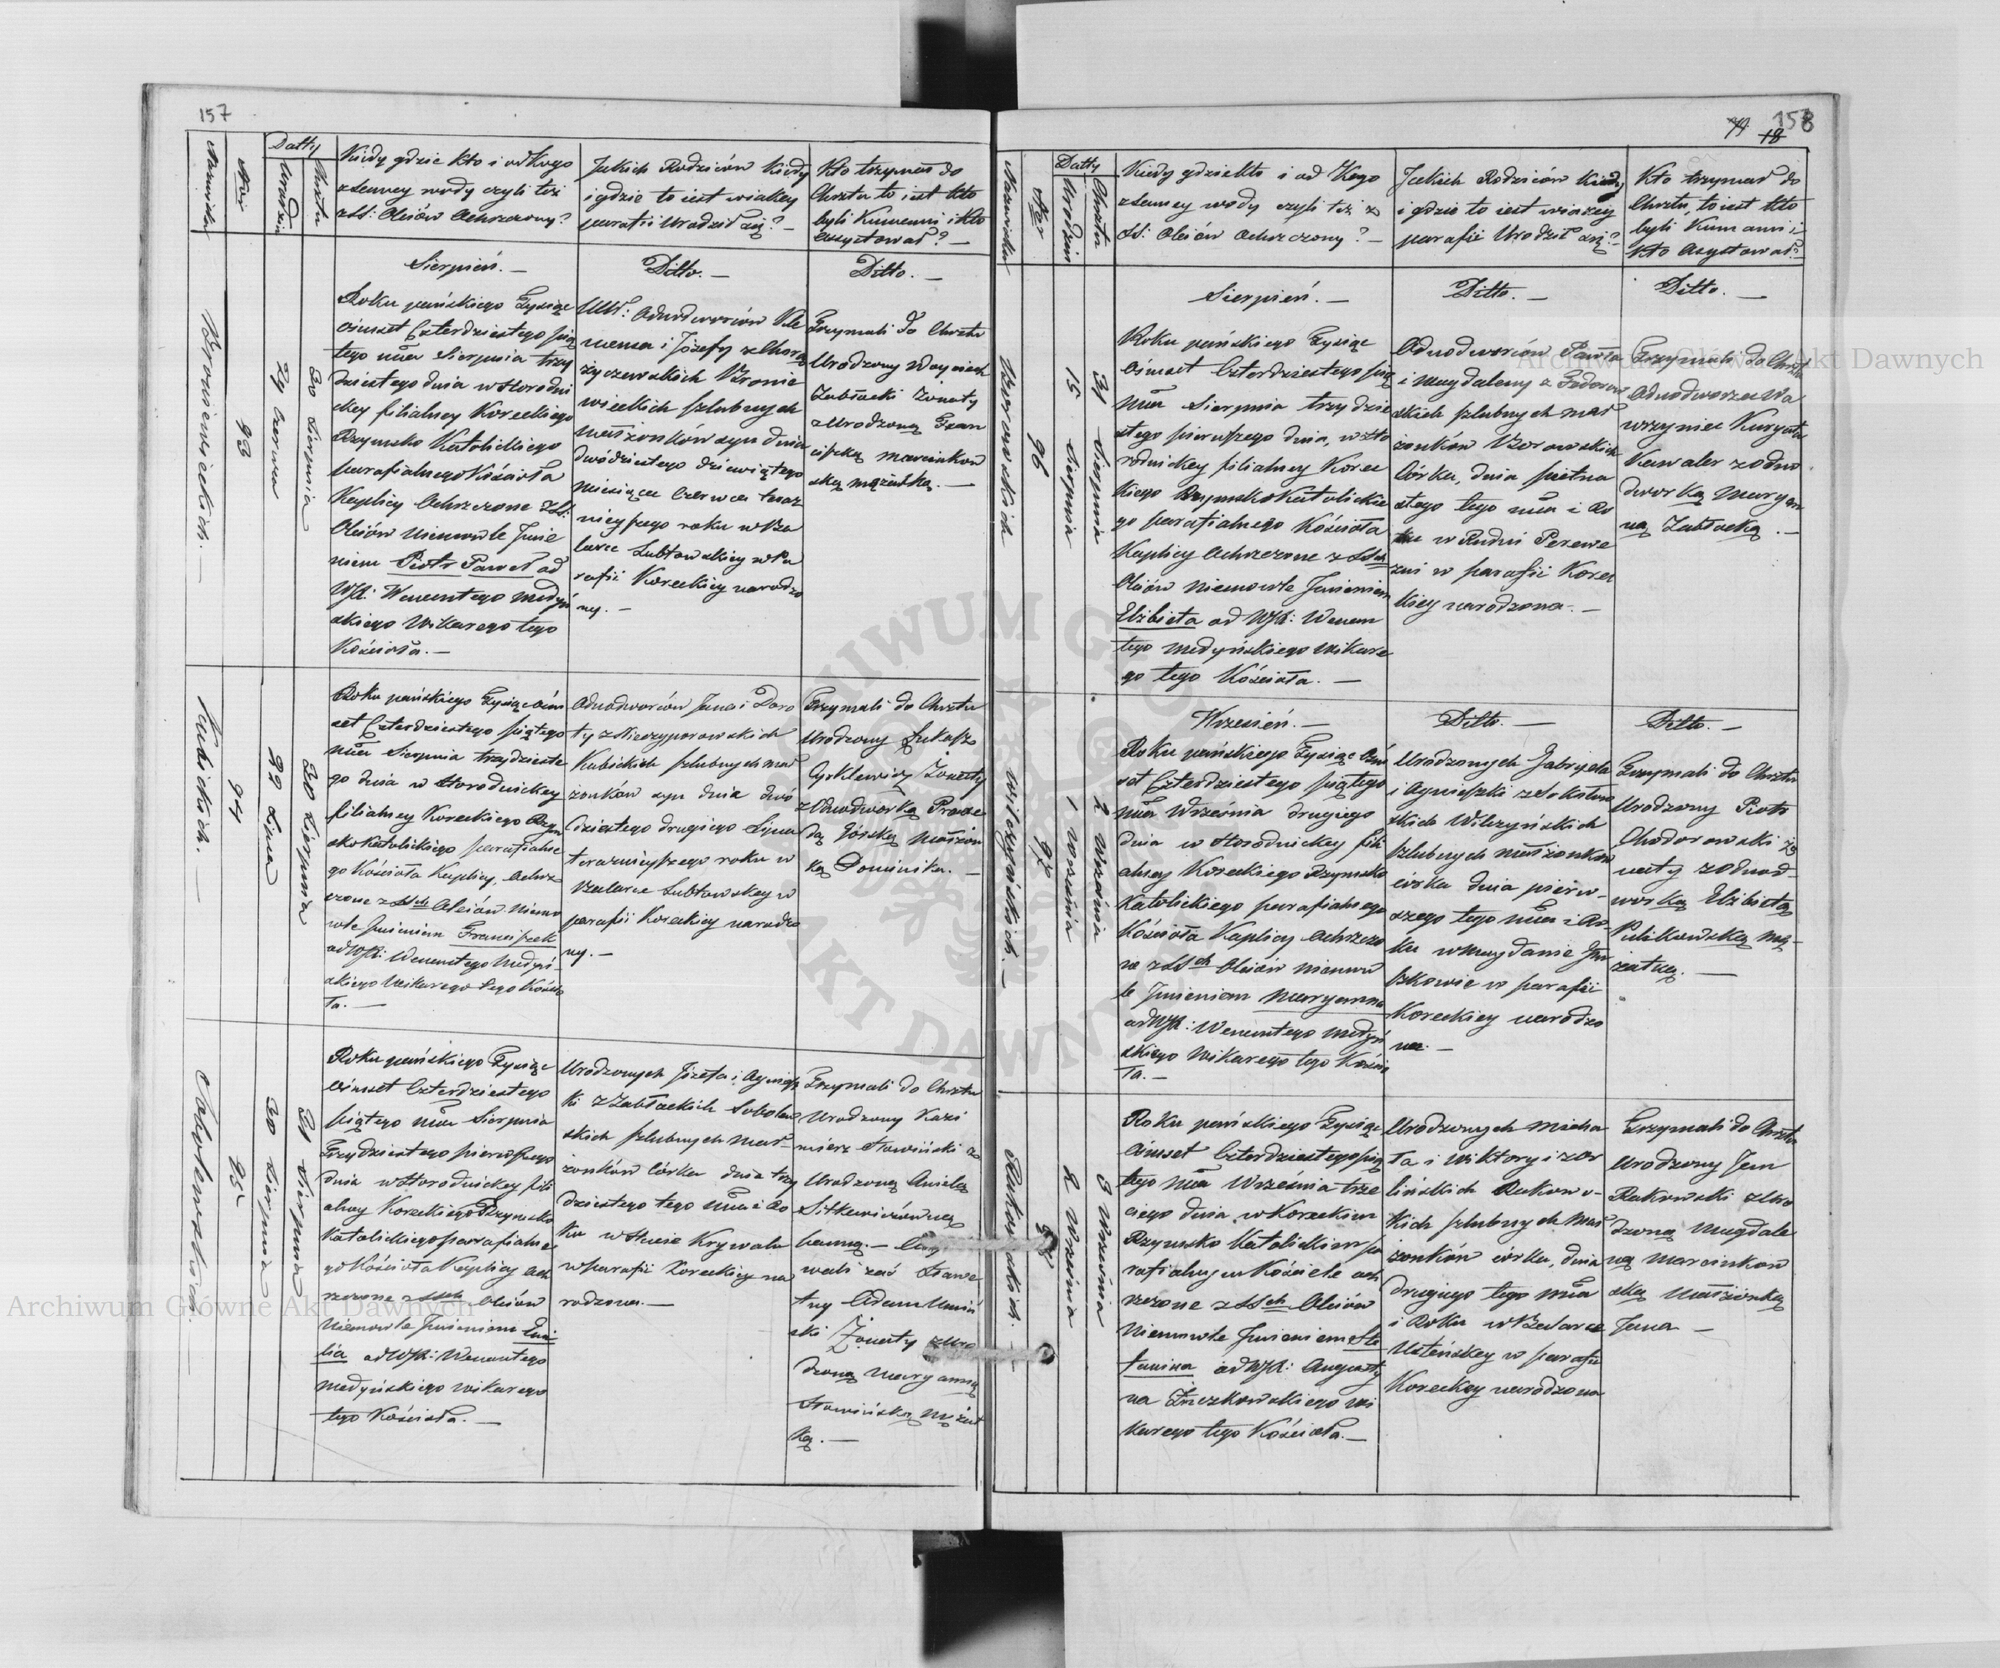 157
Datty
Nazwiska
Nr
Urodzin
Chrztu
Kiedy gdzie kto i od kogo
z samey wody czyli też
z SS: Oleiów Ochrzczony?
Jakich Rodziców Kiedy
i gdzie to iest wiakiey
parafii Urodził się? —
Kto trzymał do
Chrztu to iest kto
byli Kumami i kto
assystował? —
Sierpień. —
Ditto. —
Ditto. —
Broniewieckich. —
93
29 Czerwca
30 Sierpnia
Roku pańskiego Tysiąc
ośmset Czterdziestego pią
tego mca Sierpnia trzy
dziestego dnia w Horodni
ckey filialney Koreckiego
Rzymsko Katolickiego
parafialnego Kościoła
Kaplicy Ochrzczone z SS:
Oleiów Niemowle Jmie
niem Piotr Paweł od
WJX: Wincentego Medyń
skiego Wikarego tego
Kościoła. —
Odnodworców Kle
mensa i Józefy z Chorą
życzewskich Bronie
wieckich szlubnych
małżonków syn dnia
dwódziestego dziewiątego
miesiąca Czerwca teraz
nieyszego roku w Bu
larce Lubłowskiey w Pa
rafii Koreckiey narodzo
ny. —
Trzymali do Chrztu
Urodzony Woyciech
Zabłocki Żonaty
z Urodzoną Fran
ciszką Marcinkow
ską mężatką. —
Kubickich. —
94
22 Lipca
30 Sierpnia
Roku pańskiego Tysiąc ośm
set Czterdziestego piątego
mca Sierpnia trzydzieste
go dnia w Horodnickey
filialney Koreckiego Rzym
sko Katolickiego parafialne
go Kościoła Kaplicy, Ochrz
czone z SSch Oleiów Niemo
wle Jmieniem Franciszek
od WJX: Wincentego Medyń
skiego Wikarego tego Kościo
ła. —
Odnodworców Jana i Doro
ty z Nieczyporowskich
Kubickich szlubnych mał
żonków syn dnia dwó
dziestego drugiego Lipca
teraznieyszego roku w
Bularce Lubłowskey w
parafii Koreckiey narodzo
ny. —
Trzymali do Chrztu
Urodzony Łukasz
Żonaty
z Odnodworką
Górską małżon
ką Dominika. —
Sobolewskich.
95
30 Sierpnia
31 Sierpnia
Roku pańskiego Tysiąc
Ośmset Czterdziestego
piątego mca Sierpnia
Trzydziestego pierwszego
dnia w Horodnickey fili
alney Koreckiego Rzymsko
Katolickiego parafialne
go Kościoła Kaplicy Och
rzczone z SSch Oleiów
Niemowle Jmieniem Emi
lia od WJX: Wincentego
Medyńskiego wikarego
tego Kościoła. —
Urodzonych Józefa i Agniesz
ki z Zabłockich Sobolew
skich szlubnych mał-
żonków Córka dnia trzy
dziestego tego mca i Ro
ku w Hucie Krywalu
w parafii Koreckiey na
rodzona. —
Trzymali do Chrztu
Urodzony Kazi
mierz Sławiński z
Urodzoną Anielą
Sitkiewiczówną
Panną. —
Adam
Żonaty z Uro
dzoną Maryanną
Sławińską mężat
ką. —
158
18
Datty
Nazwiska
Nr
Urodzin
Chrztu
Kiedy gdzie kto i od Kogo
z samey wody czyli też z
SS: Oleiów Ochrzczony? —
Jakich Rodziców Kiedy
i gdzie to iest w iakiey
parafii Urodził się? —
Kto trzymał do
Chrztu, to iest kto
byli Kumami i
kto Asystował?
Sierpień. —
Ditto. —
Ditto. —
Borowskich
96
15 Sierpnia
31 Sierpnia
Roku pańskiego Tysiąc
Ośmset Czterdziestego pią
mca Sierpnia trzydzie
stego pierwszego dnia, w Ho
rodnickey filialney Korec
kiego Rzymsko Katolickie
go parafialnego Kościoła
Kaplicy Ochrzczone z SSch
Oleiów Niemowle Jmieniem
Elżbieta od WJX: Wincen
tego Medyńskiego wikare
go tego Kościoła. —
Odnodworców Pawła
i Magdaleny z Fedorow
skich szlubnych mał
żonków Borowskich
Córka, dnia piętna
stego tego mca i Ro
ku w Rudni Perewo
zni w parafii Korec
kiey narodzona. —
Trzymali do Chrztu
Odnodworzec Wa
wrzyniec Kuryata
Kawaler z odno
dworką Maryan
ną Zabłocką. —
Wrzesień. —
Ditto. —
Ditto. —
Wilczyńskich. —
97
1 Września
2 Września
Roku pańskiego Tysiąc Ośm
set Czterdziestego piątego
mca Września drugiego
dnia w Horodnickey fili
alney Koreckiego Rzymsko
Katolickiego parafialnego
Kościoła Kaplicy Ochrzczo
ne z SSch Oleiów Niemow
le Jmieniem Maryanna
od WJX: Wincentego Medyń
skiego Wikarego tego Kościo
ła. —
Urodzonych Gabryela
i Agnieszki z Sokołow
skich Wilczyńskich
szlubnych małżonków
córka dnia pierw-
szego tego mca i Ro-
ku w Maydanie Jan
szkowie w parafii
Koreckiey narodzo
na. —
Trzymali do Chrztu
Urodzony Piotr
Chodorowski żo
naty z odnod-
worką Elżbietą
Pulikowską mę-
żatką. —
Rakowskich. —
98
2 Września
3 Września
Roku pańskiego Tysiąc
Ośmset Czterdziestego pią
tego mca Września trze
ciego dnia w Koreckim
Rzymsko Katolickim pa
rafialnym Kościele och
rzczone z SSch Oleiów
Niemowle Jmieniem Ste
fanina od WJX: Augusty
na Tuczkowskiego wi
karego tego Kościoła. —
Urodzonych Micha
ła i Wiktoryi z Or
lińskich Rakow-
skich szlubnych mał
żonków córka, dnia
drugiego tego mca
i Roku w Bularce
Usteńskey w parafii
Koreckey narodzona
Trzymali do Chrztu
Urodzony Jan
Rakowski z Uro
dzoną Magdale
ną Marcinkow
ską małżonką
Jana —
Archiwum Główne Akt Dawnych
Archiwum Główne Akt Dawnych
ARCHIWUM GŁÓWNE AKT DAWNYCH